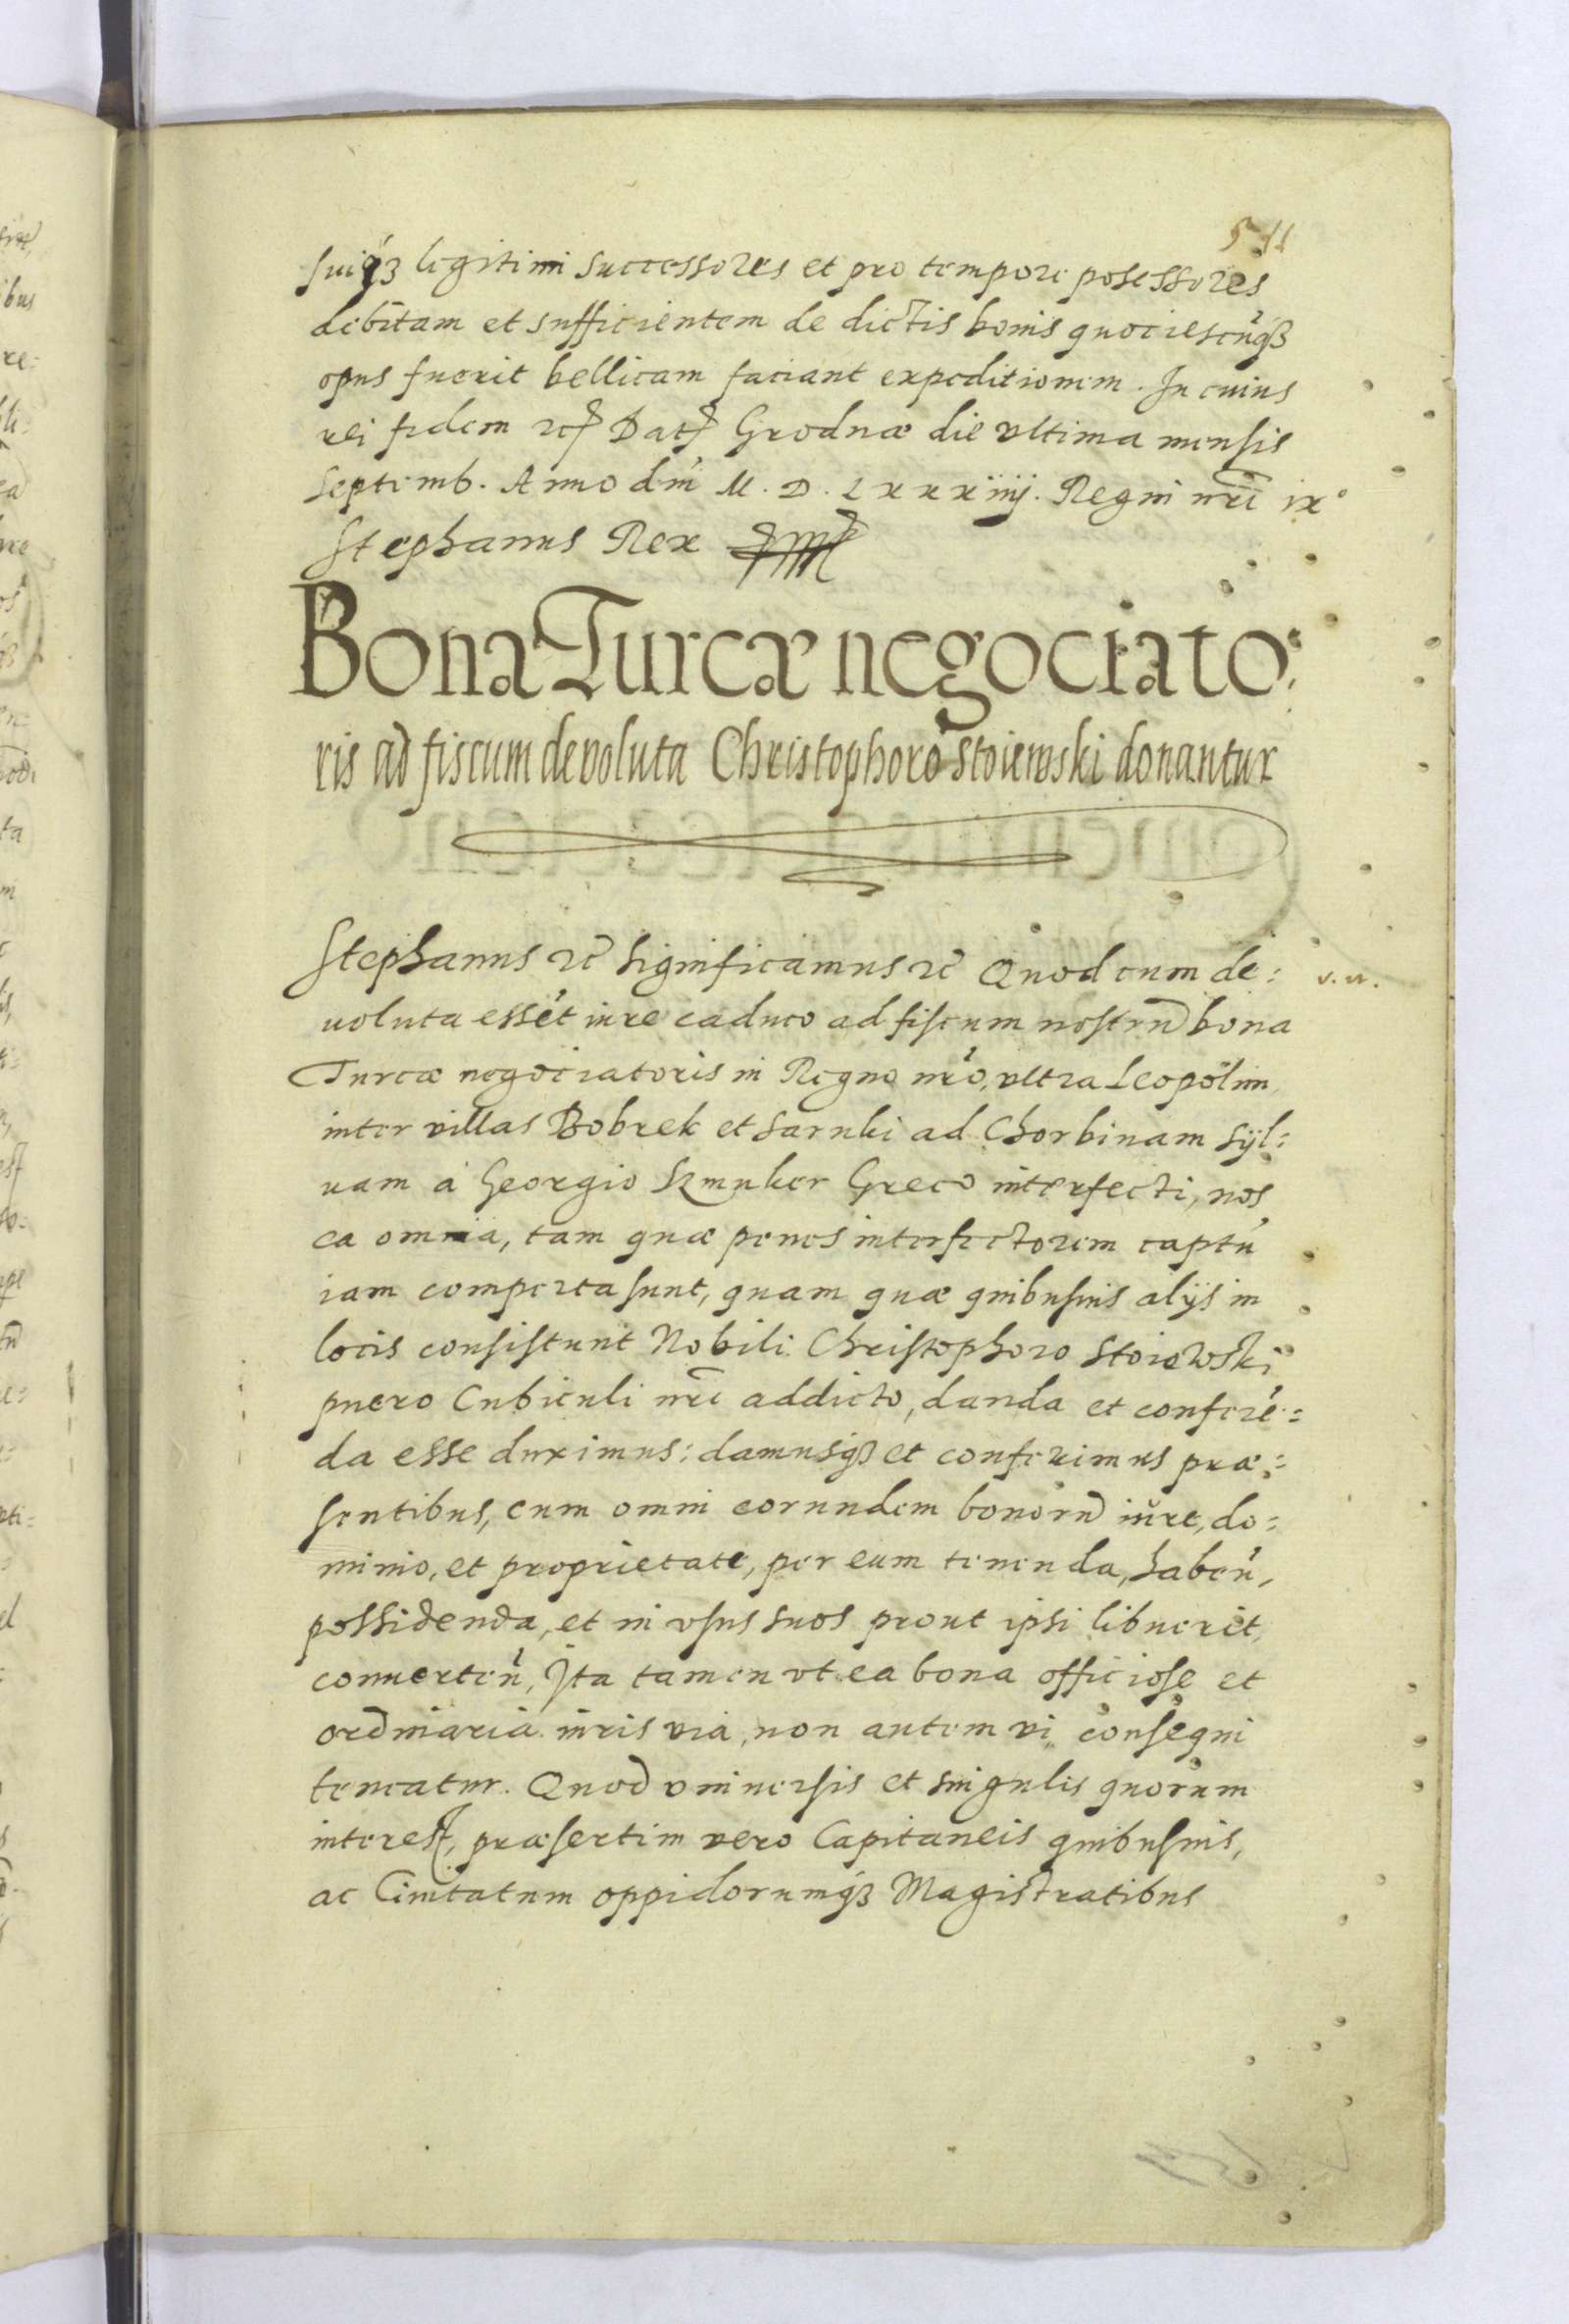 511
suiq3 legitimi successores et pro tempore posessores
debitam et sufficientem de dictis bonis quociescuq3
opus fuerit bellicam faciant expeditionem. In cuius
rei fidem etc Dat Grodnæ die vltima mensis
Septemb. Anno dni M. D. Lxxxiiij. Regni nri ix°
Stephanus Rex
Bona Turcæ negociato:
ris ad fiscum devoluta Christophoro Stoiewski donantur
Stephanus etc Significamus etc Quod cum de:
v. n.
uoluta essét iure caduco ad fiscum nostrũ bona
Turcæ negociatoris in Regno nro, vltra Leopolim
inter villas Bobrek et Sarnki ad Chorbinam syl:
uam á Georgio Szmuker Greco interfecti, nos
ea omnia, tam quæ penes interfectorem captũ
iam comperta sunt, quam quæ quibusuis alijs in
locis consistunt Nobili Christophoro Stoiewski
puero Cubiculi nri addicto, danda et conferẽ:
da esse duximus: damusq3 et conferimus præ:
sentibus, cum omni eorundem bonorũ iŭre, do:
minio, et proprietate, per eum tenenda, haben,
possidenda, et in vsus suos prout ipsi libuerit,
conuerten, Ita tamen vt ea bona officiose et
ordinaria iuris via, non autem vi consequi
teneatur. Quod vniuersis et singulis quorum
interest, præsertim vero Capitaneis quibusuis,
ac Ciuitatum oppidorumq3 Magistratibus